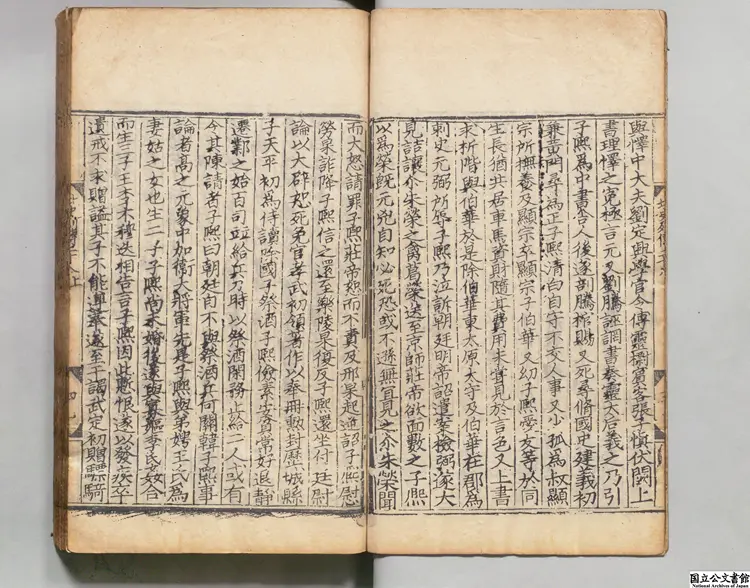 與懌中大夫劉定興學官令傅靈㯹賓客張子慎伏闕上
書理懌之冤極言元乂劉騰誣調書奏靈太后義之乃引
子熙為中書舍人後遂剖騰棺賜乂死尋脩國史建義初
兼黃門尋為正子熙清白自守不交人事又少孤為叔顯
宗所撫養及顯宗卒顯宗子伯華又幼子熙愛友等於同
生長猶共居車馬資財隨其費用未嘗見於言色又上書
求析階與伯華於是除伯華東太原太守及伯華在郡為
刺史元弼所辱子熙乃泣訴朝廷明帝詔遣案檢弼遂大
見詰讓尒朱榮之禽葛榮送至京師莊帝欲面數之子熙
以為榮旣元兇自知必死恐或不遜無宜見之尒朱榮聞
而大怒請罪子熙莊帝恕而不責及邢杲起逆詔子熙慰
勞杲詐降子熙信之還至樂陵杲復反子熙還坐付廷尉
論以大辟恕死免官孝武初領著作以奉冊勲封歷城縣
子天平初為侍讀除國子祭酒子熙儉素安貧常好退靜
遷鄴之始百司並給兵力時以祭酒閑務止給二人或有
令其陳請者子熙曰朝廷自不與祭酒兵何關韓子熙事
論者高之元象中加衛大將軍先是子熙與弟娉王氏為
妻姑之女也生二子子熙尚未婚後遂與寡嫗李氏姦合
而生三子王李不穆迭相告言子熙因此慙恨遂以發疾卒
遺戒不求贈謚其子不能遵奉遂至干謁武定初贈驃騎
国立公文書館
National Archives of Japan